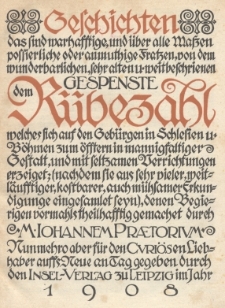 Geschichten
das sind warhafftige, und über alle Maßen
possierliche oder anmuthige Fratzen, von dem
wunderbarlichen, sehr alten u⸗ weitbeschrienen
GESPENSTE
dem Rübezahl
welches sich auf den Gebürgen in Schlesien u⸗
Böhmen zum öfftern in mannigfaltiger
Gestalt, und mit seltzamen Verrichtungen
erzeiget; (nachdem sie aus sehr vieler, weit⸗
läufftiger, kostbarer, auch mühsamer Erkun⸗
digunge eingesamlet seyn), denen Begie⸗
rigen vormahls theilhafftig gemachet durch
M·IOHANNEM PRÆTORIVM
Nunmehro aber für den CVRIÖsen Lieb⸗
haber auffs Neue an Tag gegeben durch
den INSEL⸗VERLAG zu LEIPZIG im Jahr
1908